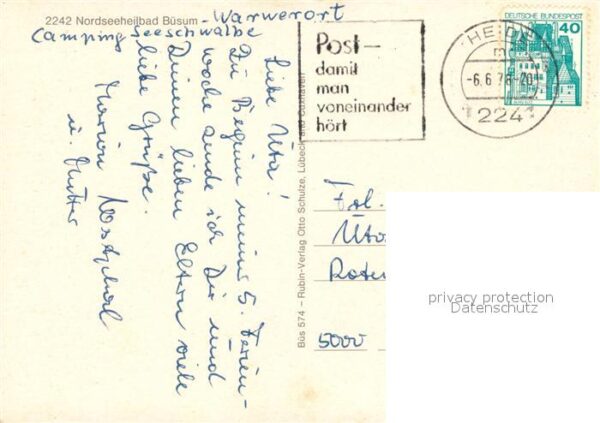 2242 Nordseeheilbad Büsum - Warwerort
Camping Seeschwalbe
Liebe Uta!
Zu Beginn meines 5. Ferien-
woche sende ich Dir und
Deinen lieben Eltern viele
liebe Grüße.
Marion
u. Mutter
Büs 574 – Rubin-Verlag Otto Schulze, Lübeck und Cuxhaven
Post–
damit
man
voneinander
hört
-6.6.
2241
DEUTSCHE BUNDESPOST
40
Frl.
Uta
5000
privacy protection
Datenschutz